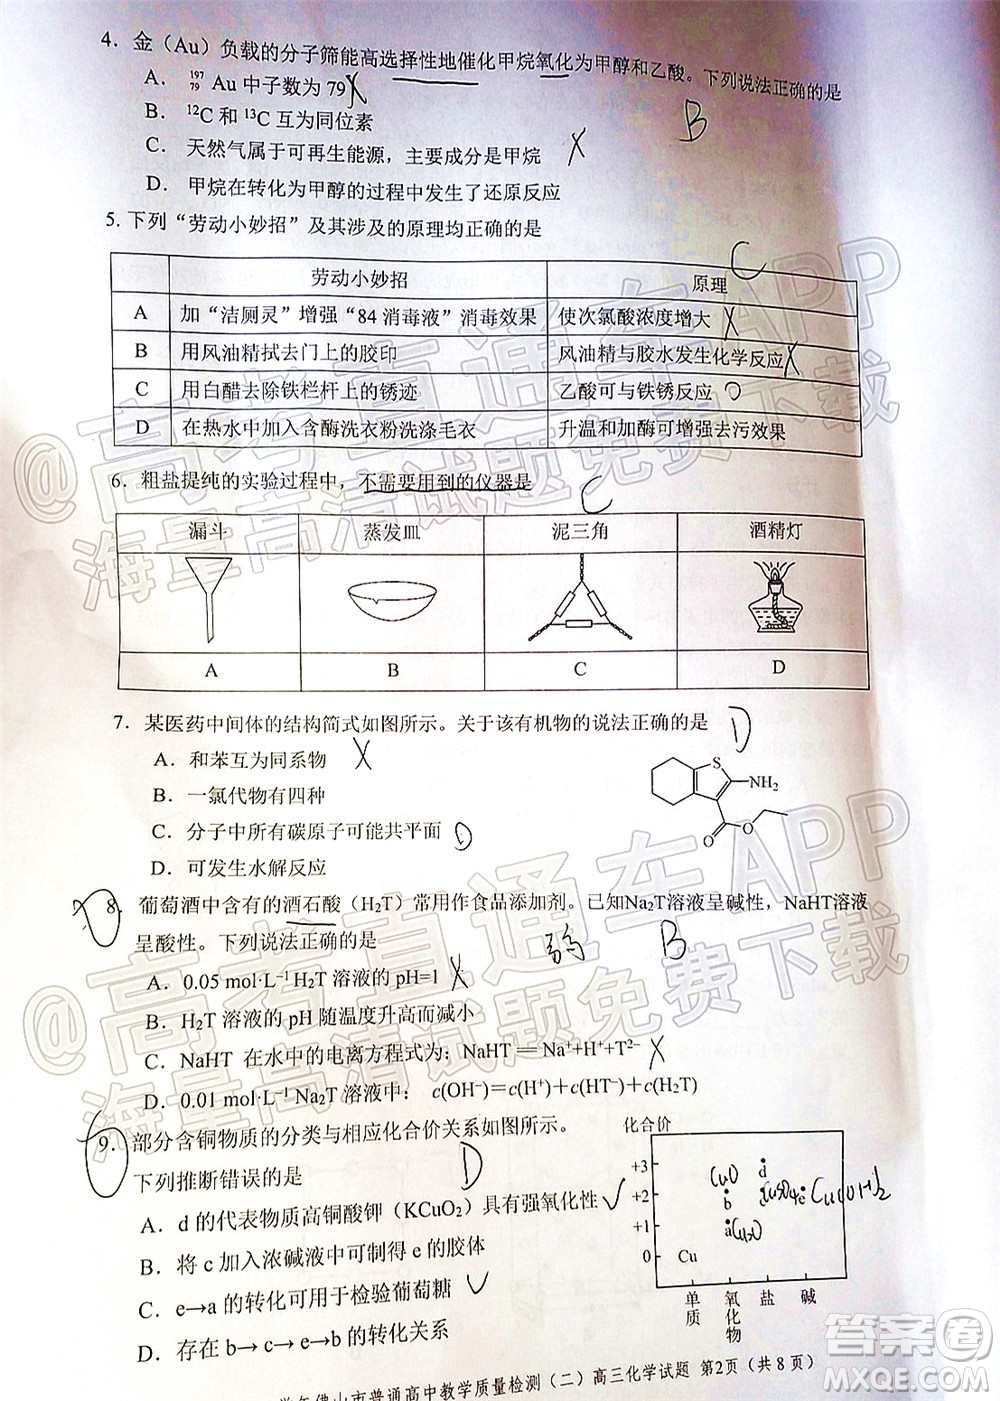 4．金（Au）负载的分子筛能高选择性地催化甲烷氧化为甲醇和乙酸。下列说法正确的是
A．¹⁹⁷₇₉Au 中子数为 79 X
B
B．¹²C 和 ¹³C 互为同位素
C．天然气属于可再生能源，主要成分是甲烷 X
D．甲烷在转化为甲醇的过程中发生了还原反应
5. 下列“劳动小妙招”及其涉及的原理均正确的是
C
劳动小妙招 原理
A 加“洁厕灵”增强“84 消毒液”消毒效果 使次氯酸浓度增大 X
B 用风油精拭去门上的胶印 风油精与胶水发生化学反应 X
C 用白醋去除铁栏杆上的锈迹 乙酸可与铁锈反应
D 在热水中加入含酶洗衣粉洗涤毛衣 升温和加酶可增强去污效果
6．粗盐提纯的实验过程中，不需要用到的仪器是 C
漏斗 蒸发皿 泥三角 酒精灯
A B C D
7．某医药中间体的结构简式如图所示。关于该有机物的说法正确的是 D
A．和苯互为同系物 X
B．一氯代物有四种
C．分子中所有碳原子可能共平面
D．可发生水解反应
S NH₂
O O
8．葡萄酒中含有的酒石酸（H₂T）常用作食品添加剂。已知Na₂T溶液呈碱性，NaHT溶液
呈酸性。下列说法正确的是 弱 B
A．0.05 mol·L⁻¹ H₂T 溶液的 pH=1 X
B．H₂T 溶液的 pH 随温度升高而减小
C．NaHT 在水中的电离方程式为：NaHT ＝ Na⁺+H⁺+T²⁻ X
D．0.01 mol·L⁻¹ Na₂T 溶液中： c(OH⁻)＝c(H⁺)+c(HT⁻)+c(H₂T)
9．部分含铜物质的分类与相应化合价关系如图所示。
下列推断错误的是 D
A．d 的代表物质高铜酸钾（KCuO₂）具有强氧化性 √
B．将 c 加入浓碱液中可制得 e 的胶体
C．e→a 的转化可用于检验葡萄糖 √
D．存在 b→c→e→b 的转化关系
化合价
+3 d
+2 b c e
+1 a
0 Cu
单质 氧化物 盐 碱
佛山市普通高中教学质量检测（二）高三化学试题 第2页（共 8 页）
@高考直通车APP
海量高清试题免费下载
@高考直通车APP
海量高清试题免费下载
答案圈
MXQE.COM